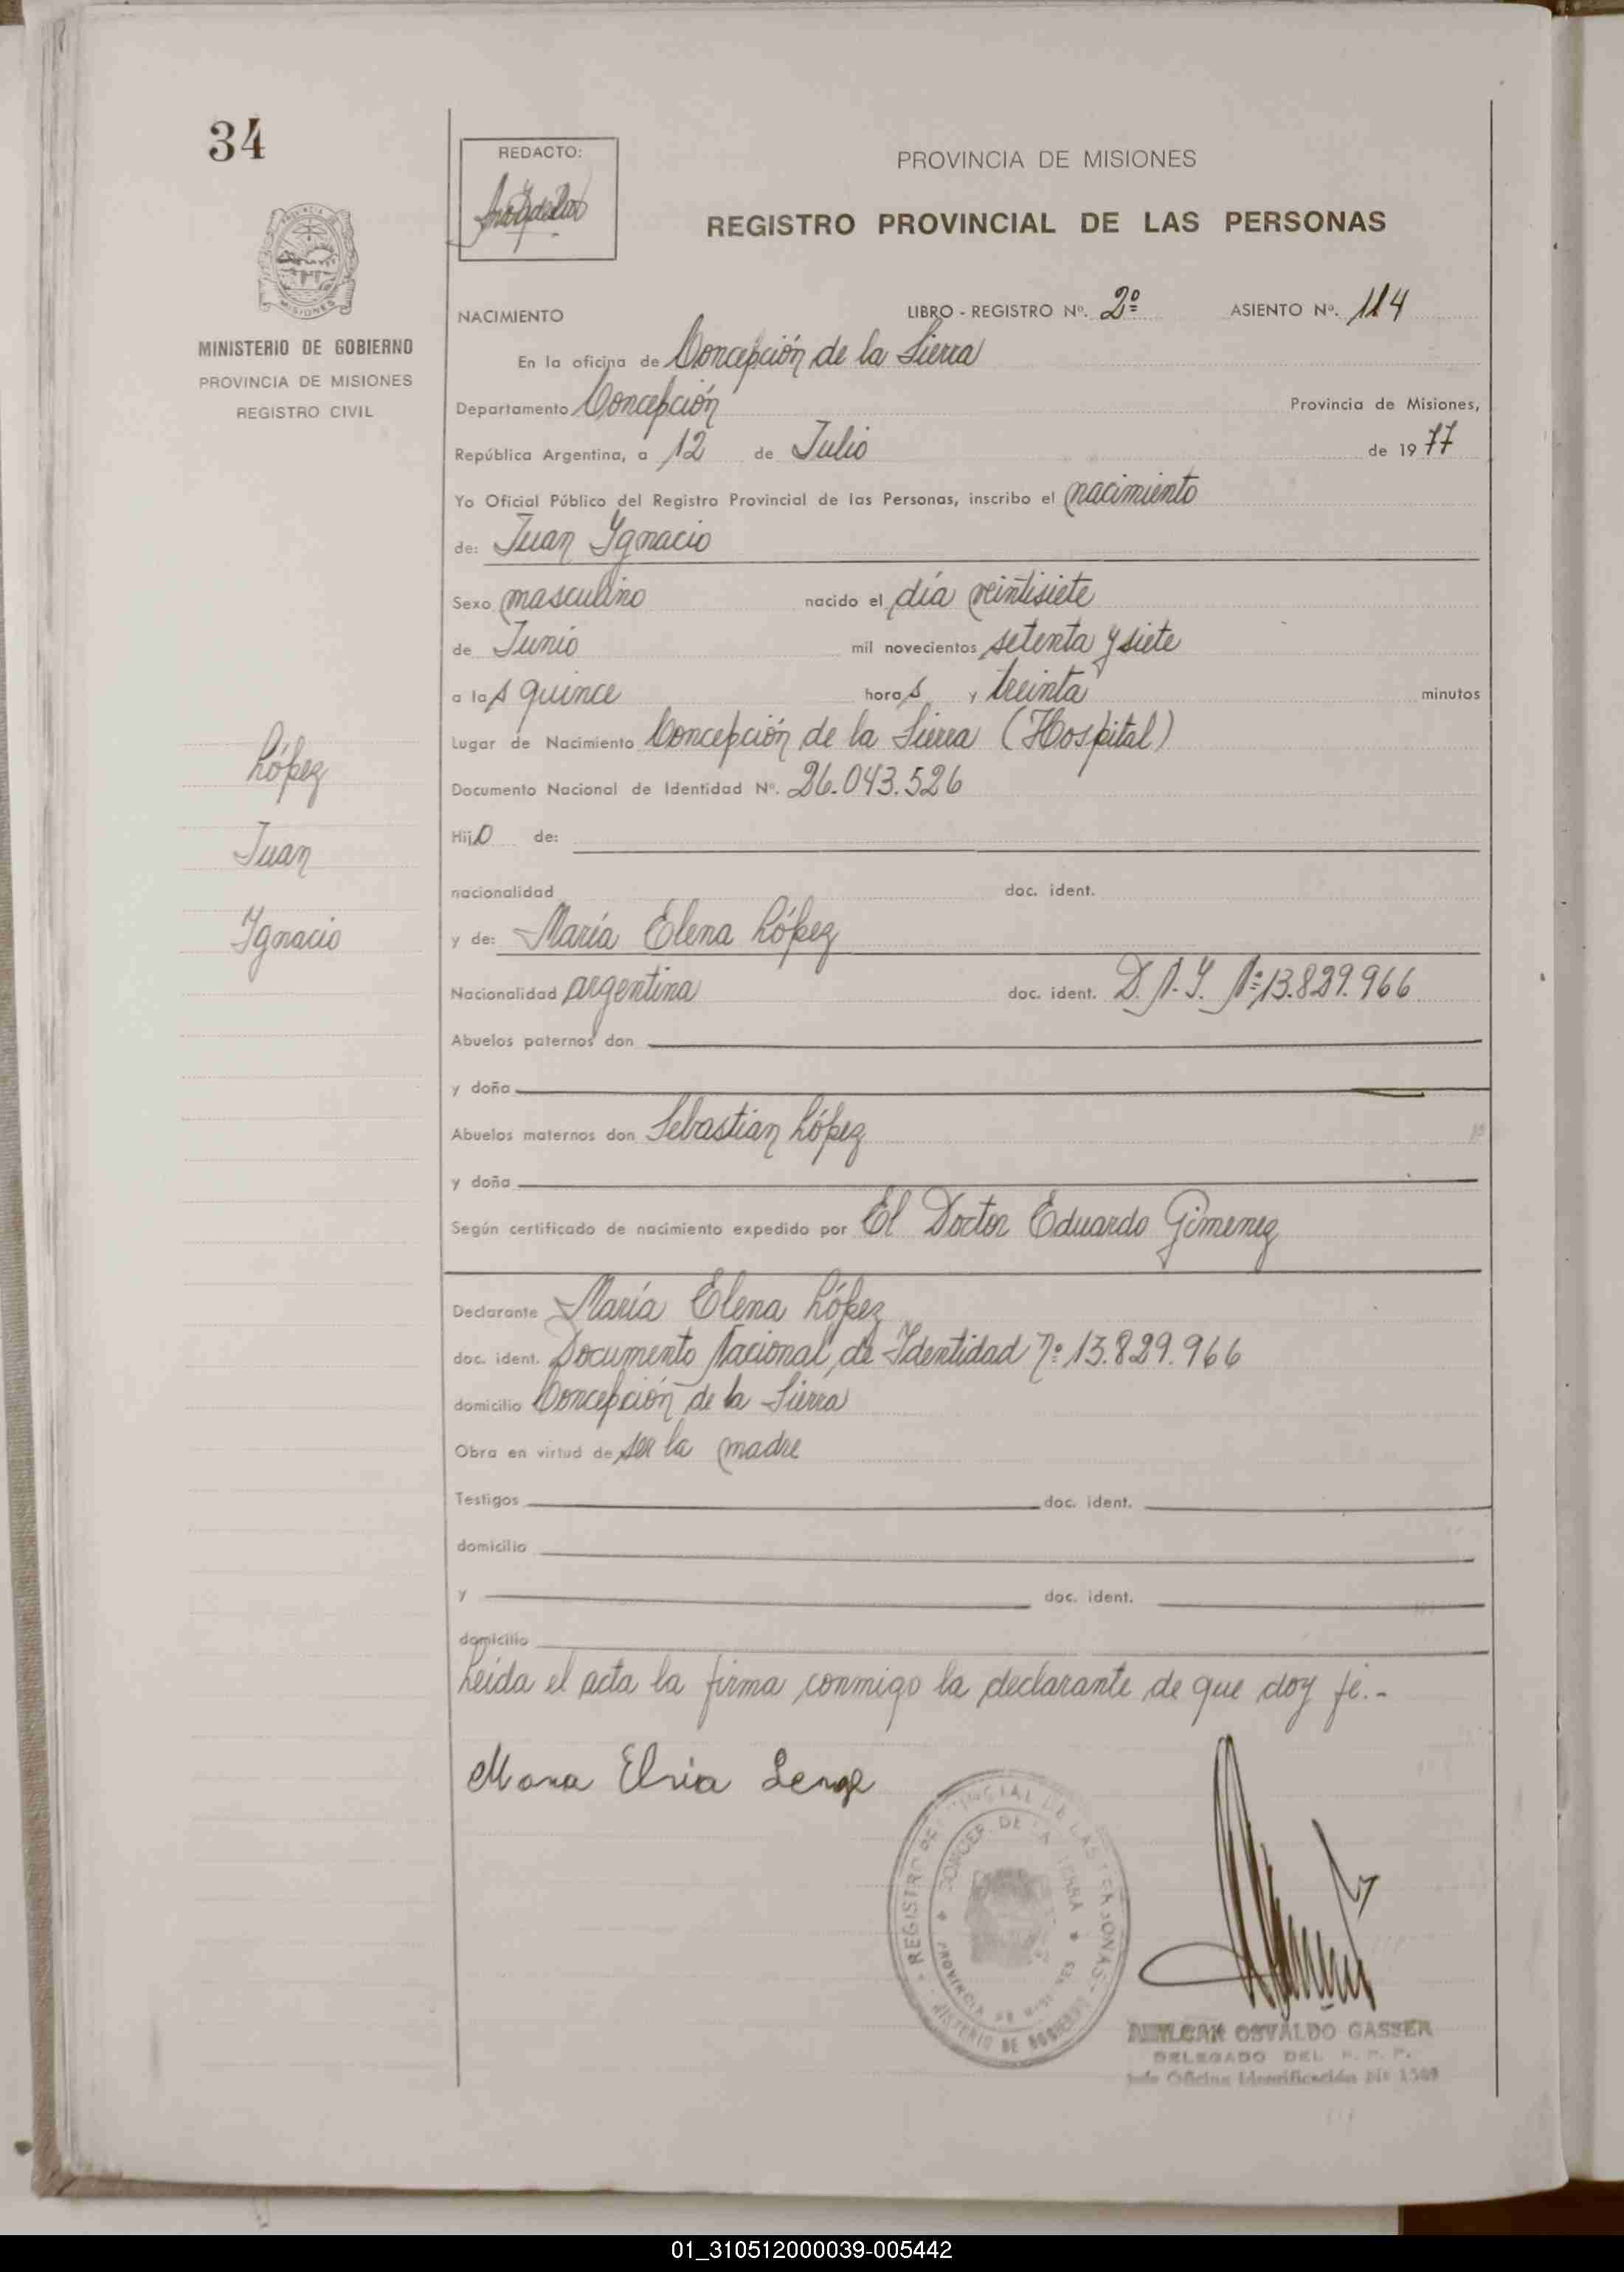 34
REDACTO:
PROVINCIA DE MISIONES
REGISTRO PROVINCIAL DE LAS PERSONAS
MISIONES
MINISTERIO DE GOBIERNO
PROVINCIA DE MISIONES
REGISTRO CIVIL
NACIMIENTO LIBRO - REGISTRO Nº. 2º ASIENTO Nº. 114
En la oficina de Concepción de la Sierra
Departamento Concepción Provincia de Misiones,
República Argentina, a 12 de Julio de 1977
Yo Oficial Público del Registro Provincial de las Personas, inscribo el nacimiento
de: Juan Ygnacio
Sexo masculino nacido el día veintisiete
de Junio mil novecientos setenta y siete
a las quince horas y treinta minutos
Lugar de Nacimiento Concepción de la Sierra (Hospital)
Documento Nacional de Identidad Nº. 26.043.526
Hijo de:
nacionalidad doc. ident.
y de: María Elena López
Nacionalidad argentina doc. ident. D.N.Y. Nº 13.829.966
Abuelos paternos don
y doña
Abuelos maternos don Sebastian López
y doña
Según certificado de nacimiento expedido por El Doctor Eduardo Gimenez
Declarante María Elena López
doc. ident. Documento Nacional de Identidad Nº 13.829.966
domicilio Concepción de la Sierra
Obra en virtud de ser la madre
Testigos doc. ident.
domicilio
y doc. ident.
domicilio
Leída el acta la firma conmigo la declarante de que doy fé.-
López
Juan
Ygnacio
REGISTRO PROVINCIAL DE LAS PERSONAS
CONCEP. DE LA SIERRA
PROVINCIA DE MISIONES
MINISTERIO DE GOBIERNO
OSVALDO GASSER
DELEGADO DEL R. P. P.
Jefe Oficina Identificación Nº 1509
01_310512000039-005442